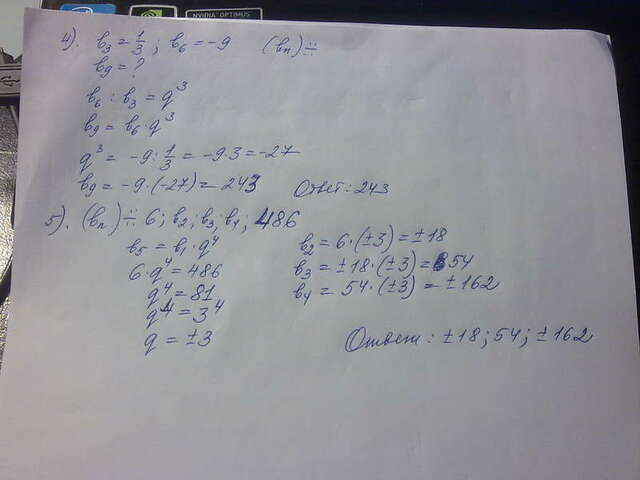 NVIDIA OPTIMUS
4). b₃ = 1/3 ; b₆ = -9 (bₙ) ∺
b₉ = ?
b₆ : b₃ = q³
b₉ = b₆ · q³
q³ = -9 : 1/3 = -9 · 3 = -27
b₉ = -9 · (-27) = 243 Ответ : 243
5). (bₙ) ∺ 6 ; b₂ ; b₃ ; b₄ ; 486
b₅ = b₁ · q⁴ b₂ = 6 · (±3) = ±18
6 · q⁴ = 486 b₃ = ±18 · (±3) = 54
q⁴ = 81 b₄ = 54 · (±3) = ±162
q⁴ = 3⁴
q = ±3 Ответ : ±18 ; 54 ; ±162